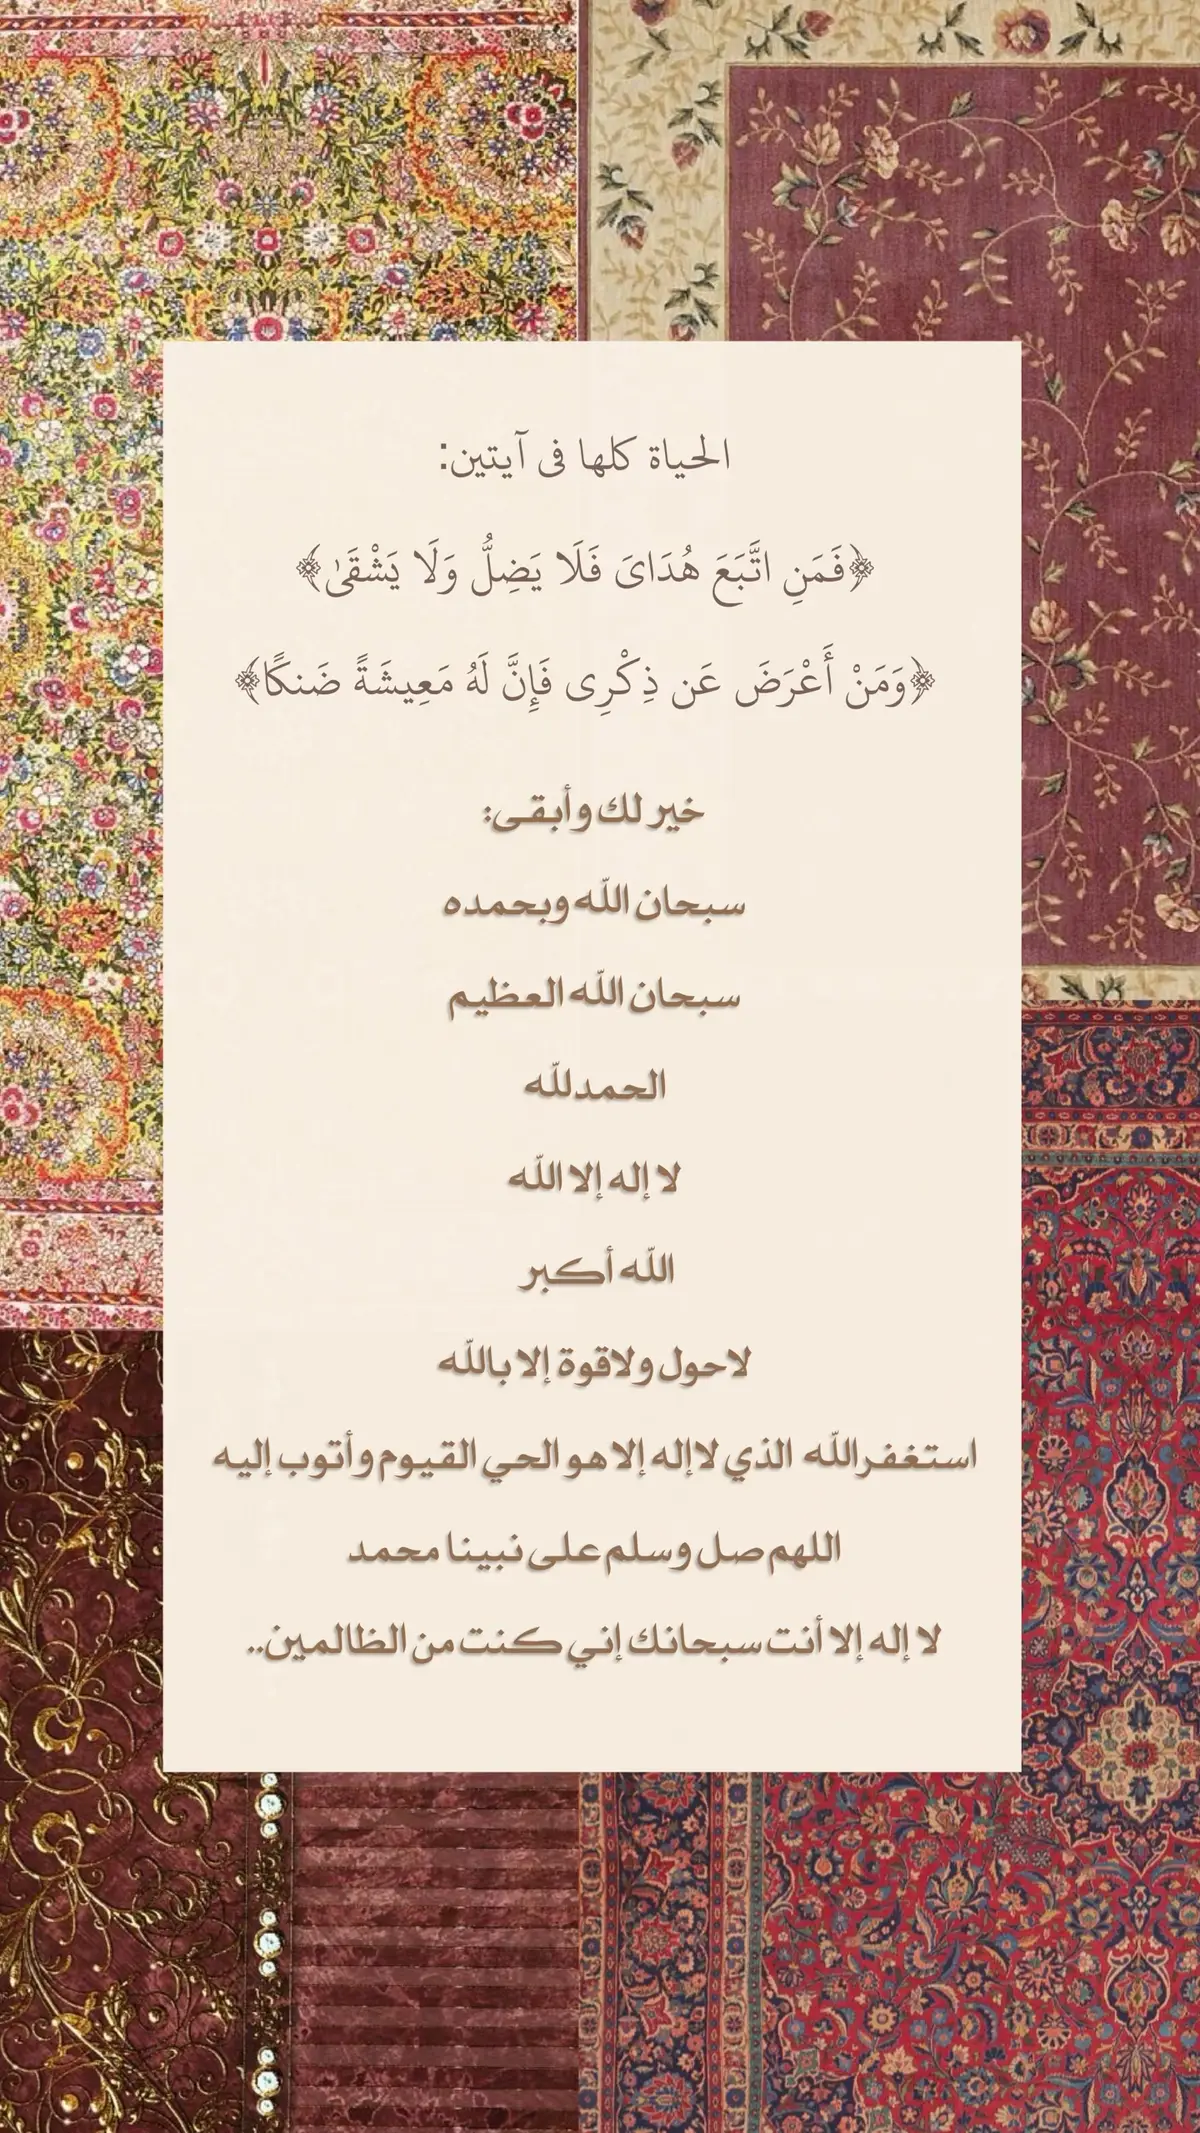 الحياة كلها فى آيتين:
﴿فَمَنِ اتَّبَعَ هُدَاىَ فَلَا يَضِلُّ وَلَا يَشْقَىٰ﴾
﴿وَمَنْ أَعْرَضَ عَن ذِكْرِى فَإِنَّ لَهُ مَعِيشَةً ضَنكًا﴾
خير لك وأبقى:
سبحان اللّه وبحمده
سبحان اللّه العظيم
الحمدللّه
لا إله إلا اللّه
اللّه أكبر
لاحول ولاقوة إلا باللّه
استغفراللّه الذي لاإله إلا هو الحي القيوم وأتوب إليه
اللهم صل وسلم على نبينا محمد
لا إله إلا أنت سبحانك إني كنت من الظالمين..